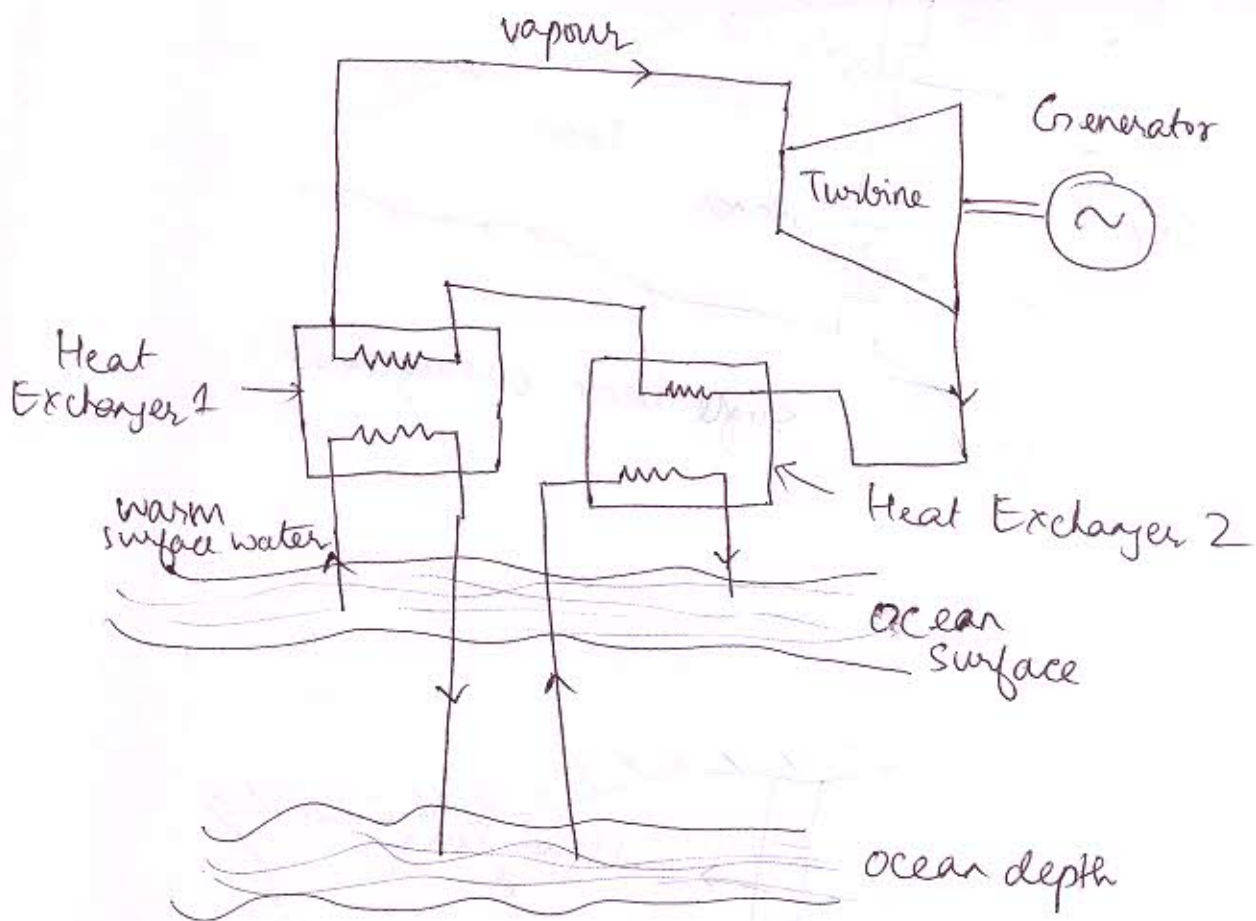 vapour
Generator
Turbine
~
Heat
Exchanger 1
Heat Exchanger 2
warm
surface water
ocean
surface
ocean depth